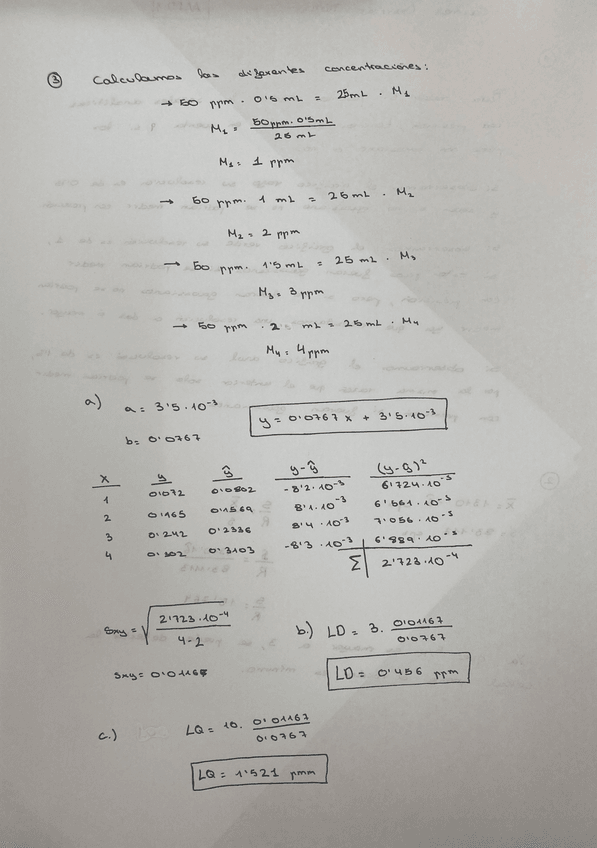 ③ Calculamos las diferentes concentraciones:
→ 50 ppm · 0'5 mL = 25mL · M₁
M₁ = 50ppm·0'5mL / 25 mL
M₁ = 1 ppm
→ 50 ppm · 1 mL = 25 mL · M₂
M₂ = 2 ppm
→ 50 ppm · 1'5 mL = 25 mL · M₃
M₃ = 3 ppm
→ 50 ppm · 2 mL = 25 mL · M₄
M₄ = 4 ppm
a) a = 3'5·10⁻³
y = 0'0767 x + 3'5·10⁻³
b = 0'0767
x y ŷ y-ŷ (y-ŷ)²
1 0'072 0'0802 -8'2·10⁻³ 6'724·10⁻⁵
2 0'165 0'1569 8'1·10⁻³ 6'561·10⁻⁵
3 0'242 0'2336 8'4·10⁻³ 7'056·10⁻⁵
4 0'302 0'3103 -8'3·10⁻³ 6'889·10⁻⁵
Σ 2'723·10⁻⁴
Sxy = √ 2'723·10⁻⁴ / 4-2
Sxy = 0'01167
b.) LD = 3 · 0'01167 / 0'0767
LD = 0'456 ppm
c.) LQ = 10 · 0'01167 / 0'0767
LQ = 1'521 pmm